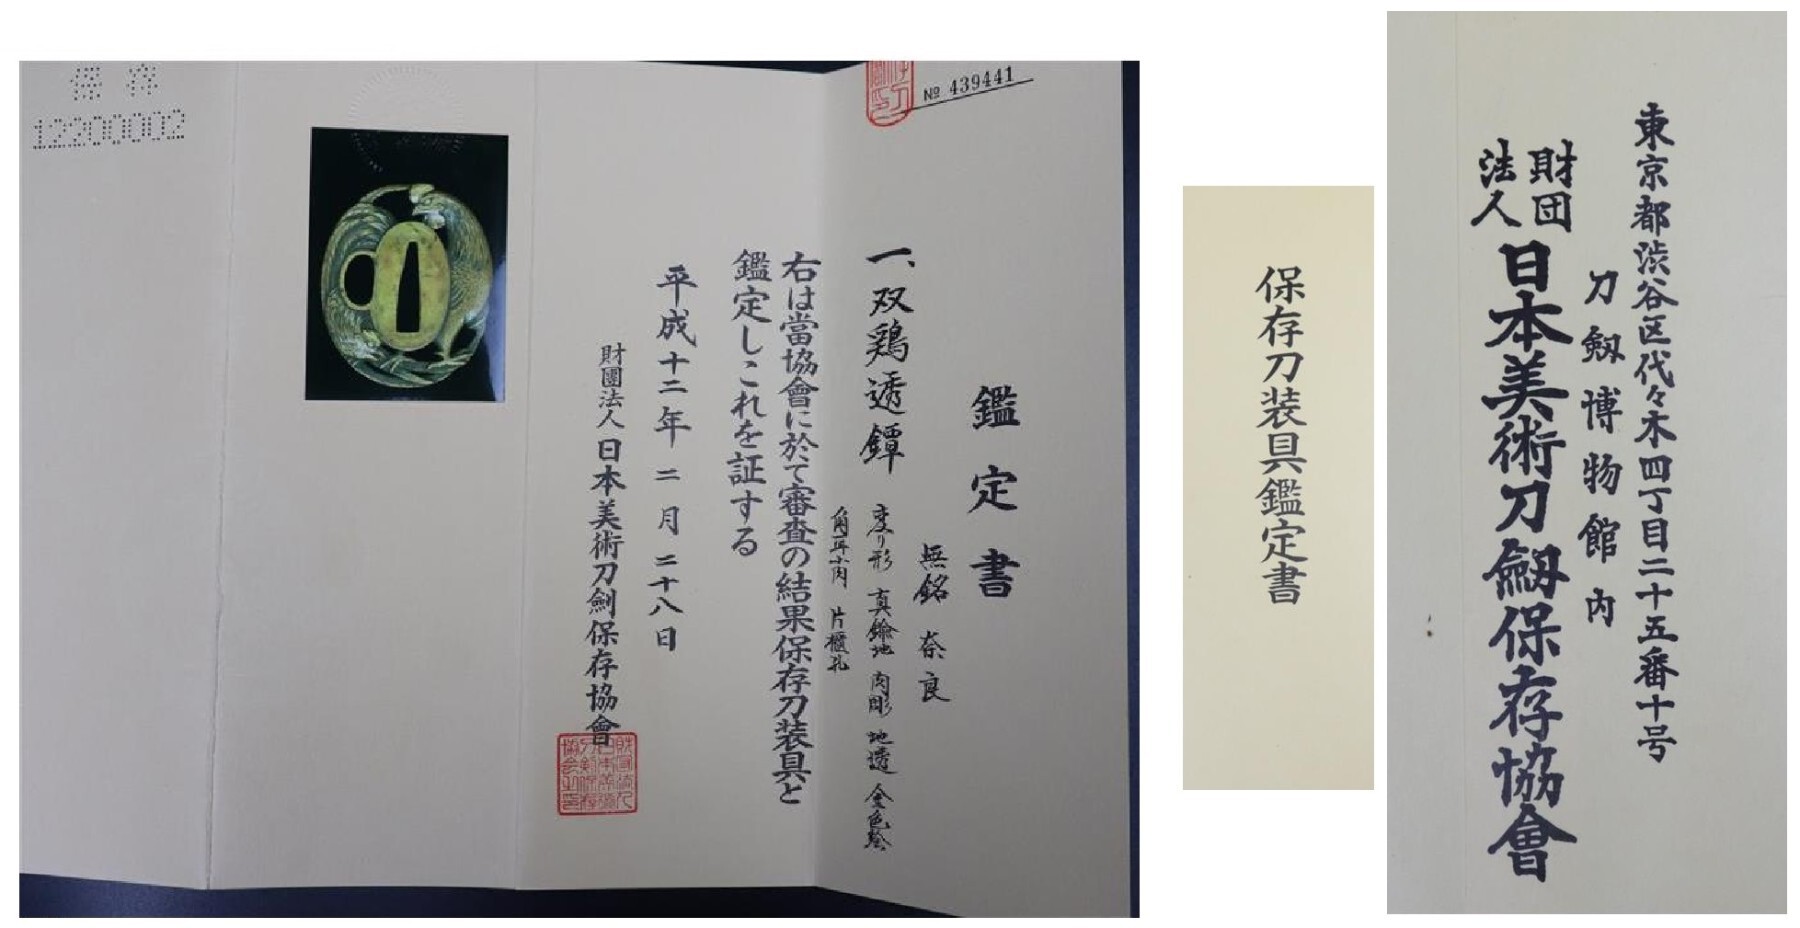 № 439441
鑑定書
無銘 奈良
一、双鶏透鐔
変り形 真鍮地 肉彫 地透 金色絵
角耳小肉 片櫃孔
右は當協會に於て審査の結果保存刀装具と
鑑定しこれを証する
平成十二年二月二十八日
財團法人 日本美術刀劍保存協會
保存
12200002
保存刀装具鑑定書
東京都渋谷区代々木四丁目二十五番十号
刀劔博物館内
財団法人 日本美術刀劔保存協會